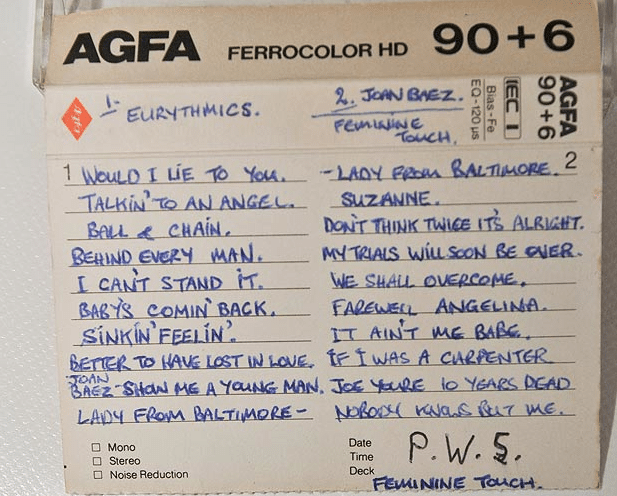 AGFA FERROCOLOR HD 90+6
Agfa
1. EURYTHMICS.
2. JOAN BAEZ.
FEMININE
TOUCH.
EQ-120 µs
Bias-Fe
IEC I
90+6
AGFA
1
WOULD I LIE TO YOU.
TALKIN' TO AN ANGEL.
BALL & CHAIN.
BEHIND EVERY MAN.
I CAN'T STAND IT.
BABY'S COMIN' BACK.
SINKIN' FEELIN'.
BETTER TO HAVE LOST IN LOVE.
JOAN
BAEZ - SHOW ME A YOUNG MAN.
LADY FROM BALTIMORE -
2
- LADY FROM BALTIMORE.
SUZANNE.
DON'T THINK TWICE IT'S ALRIGHT.
MY TRIALS WILL SOON BE OVER.
WE SHALL OVERCOME.
FAREWELL ANGELINA.
IT AIN'T ME BABE.
IF I WAS A CARPENTER
JOE YOURE 10 YEARS DEAD
NOBODY KNOWS BUT ME.
Mono
Stereo
Noise Reduction
Date
Time
Deck
P.W.S.
FEMININE TOUCH.